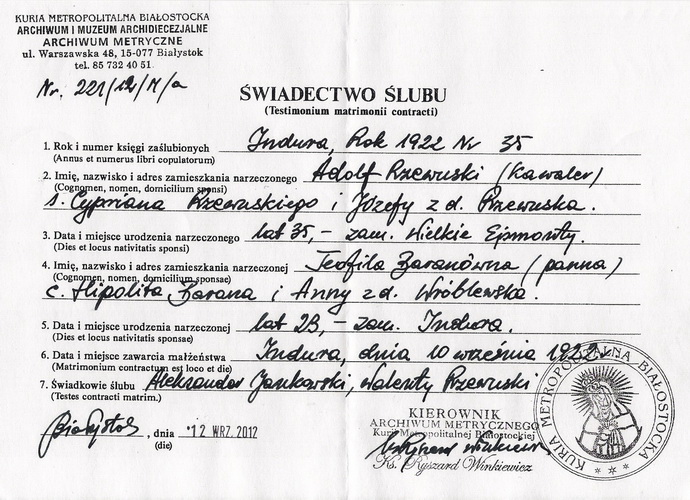 KURIA METROPOLITALNA BIAŁOSTOCKA
ARCHIWUM I MUZEUM ARCHIDIECEZJALNE
ARCHIWUM METRYCZNE
ul. Warszawska 48, 15-077 Białystok
tel. 85 732 40 51
Nr. 221/12/M/a
ŚWIADECTWO ŚLUBU
(Testimonium matrimonii contracti)
1. Rok i numer księgi zaślubionych Indura, Rok 1922 Nr 35
(Annus et numerus libri copulatorum)
2. Imię, nazwisko i adres zamieszkania narzeczonego Adolf Rzewuski (kawaler)
(Cognomen, nomen, domicilium sponsi)
s. Cypriana Rzewuskiego i Józefy z d. Rzewuska.
3. Data i miejsce urodzenia narzeczonego lat 35,- zam. Wielkie Ejsmonty.
(Dies et locus nativitatis sponsi)
4. Imię, nazwisko i adres zamieszkania narzeczonej Teofila Baranówna (panna)
(Cognomen, nomen, domicilium sponsae)
c. Hipolita Barana i Anny z d. Wróblewska.
5. Data i miejsce urodzenia narzeczonej lat 23,- zam. Indura.
(Dies et locus nativitatis sponsae)
6. Data i miejsce zawarcia małżeństwa Indura, dnia 10 września 1922 r.
(Matrimonium contractum est loco et die)
7. Świadkowie ślubu Aleksander Jankowski, Walenty Rzewuski
(Testes contracti matrim.)
Białystok, dnia 12 WRZ. 2012
(die)
KIEROWNIK
ARCHIWUM METRYCZNEGO
Kurii Metropolitalnej Białostockiej
Ks. Ryszard Winkiewicz
KURIA METROPOLITALNA BIAŁOSTOCKA